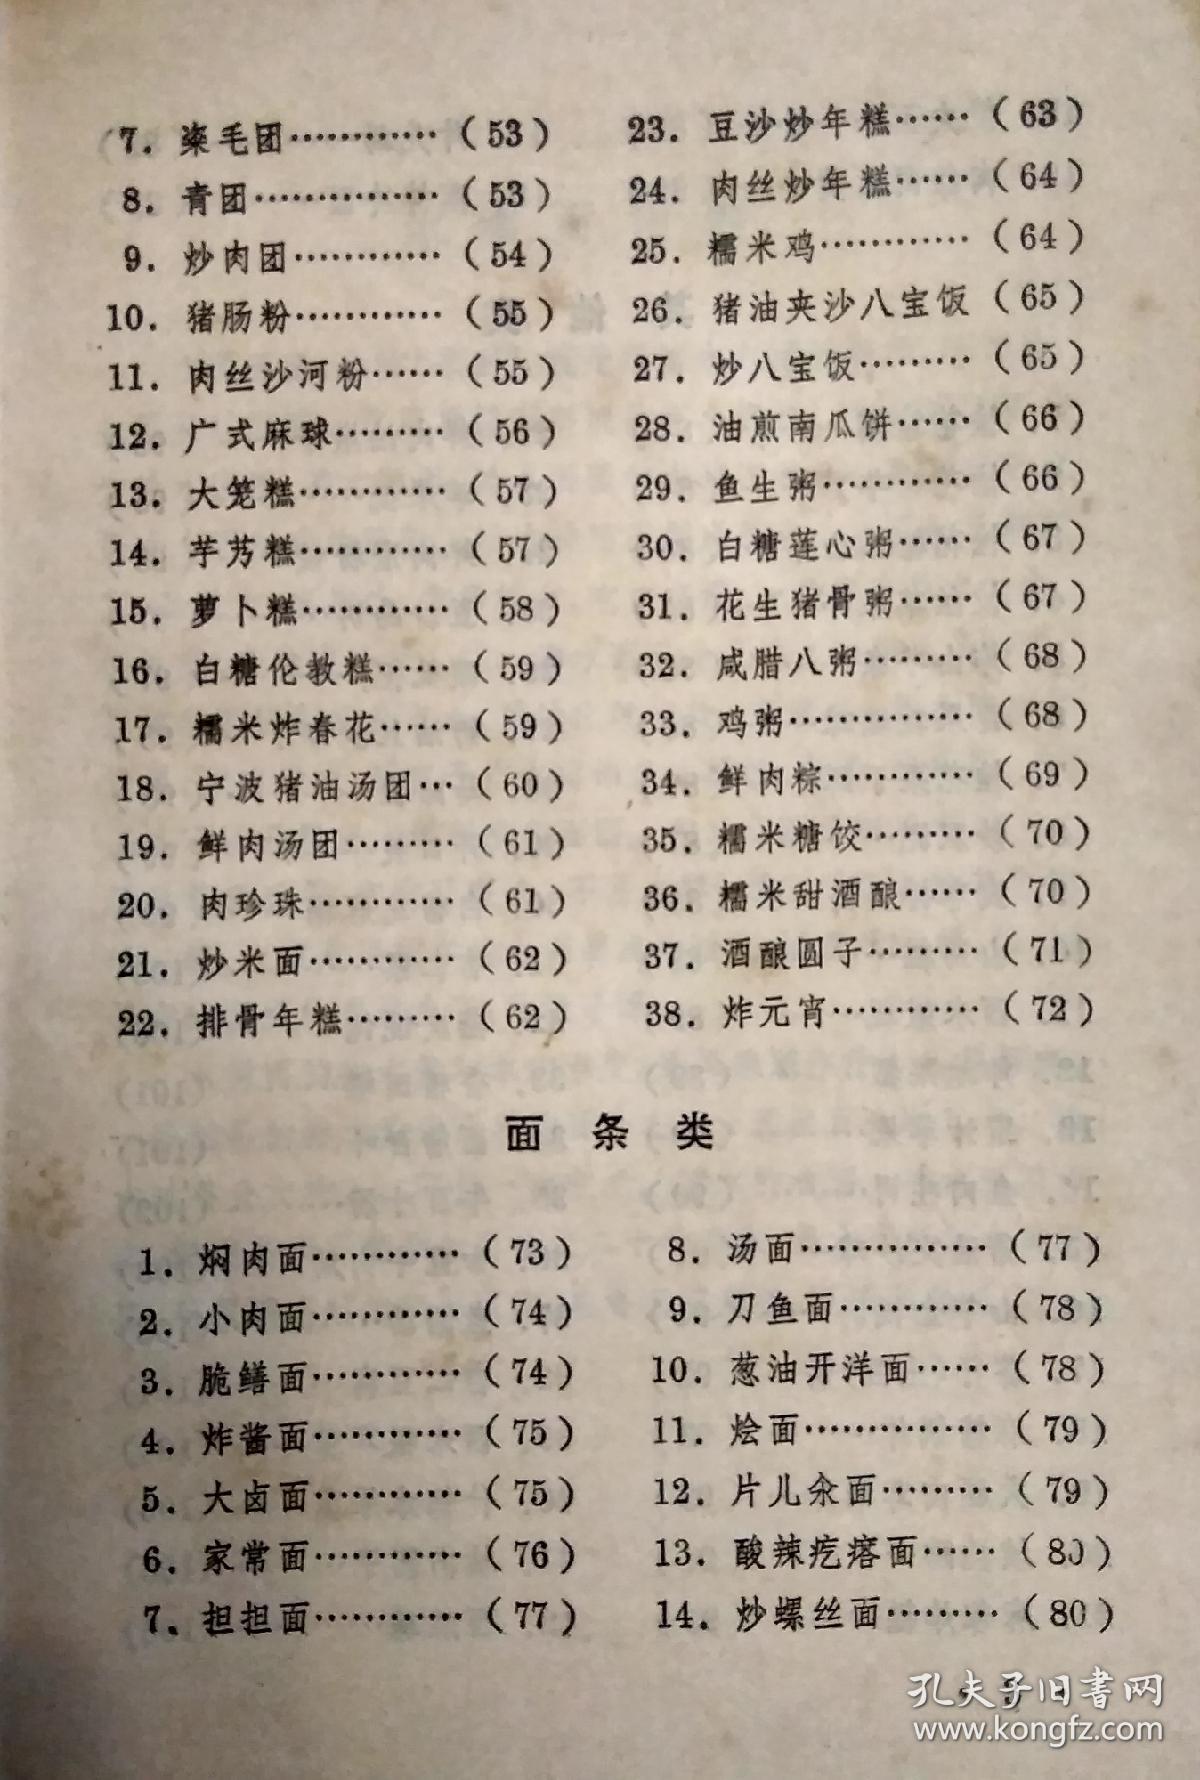 7. 粢毛团…………（53）
8. 青团……………（53）
9. 炒肉团…………（54）
10. 猪肠粉…………（55）
11. 肉丝沙河粉……（55）
12. 广式麻球………（56）
13. 大笼糕…………（57）
14. 芋艿糕…………（57）
15. 萝卜糕…………（58）
16. 白糖伦教糕……（59）
17. 糯米炸春花……（59）
18. 宁波猪油汤团…（60）
19. 鲜肉汤团………（61）
20. 肉珍珠…………（61）
21. 炒米面…………（62）
22. 排骨年糕………（62）
23. 豆沙炒年糕……（63）
24. 肉丝炒年糕……（64）
25. 糯米鸡…………（64）
26. 猪油夹沙八宝饭（65）
27. 炒八宝饭………（65）
28. 油煎南瓜饼……（66）
29. 鱼生粥…………（66）
30. 白糖莲心粥……（67）
31. 花生猪骨粥……（67）
32. 咸腊八粥………（68）
33. 鸡粥……………（68）
34. 鲜肉粽…………（69）
35. 糯米糖饺………（70）
36. 糯米甜酒酿……（70）
37. 酒酿圆子………（71）
38. 炸元宵…………（72）
面条类
1. 焖肉面…………（73）
2. 小肉面…………（74）
3. 脆鳝面…………（74）
4. 炸酱面…………（75）
5. 大卤面…………（75）
6. 家常面…………（76）
7. 担担面…………（77）
8. 汤面……………（77）
9. 刀鱼面…………（78）
10. 葱油开洋面……（78）
11. 烩面……………（79）
12. 片儿汆面………（79）
13. 酸辣疙瘩面……（80）
14. 炒螺丝面………（80）
孔夫子旧书网
www.kongfz.com